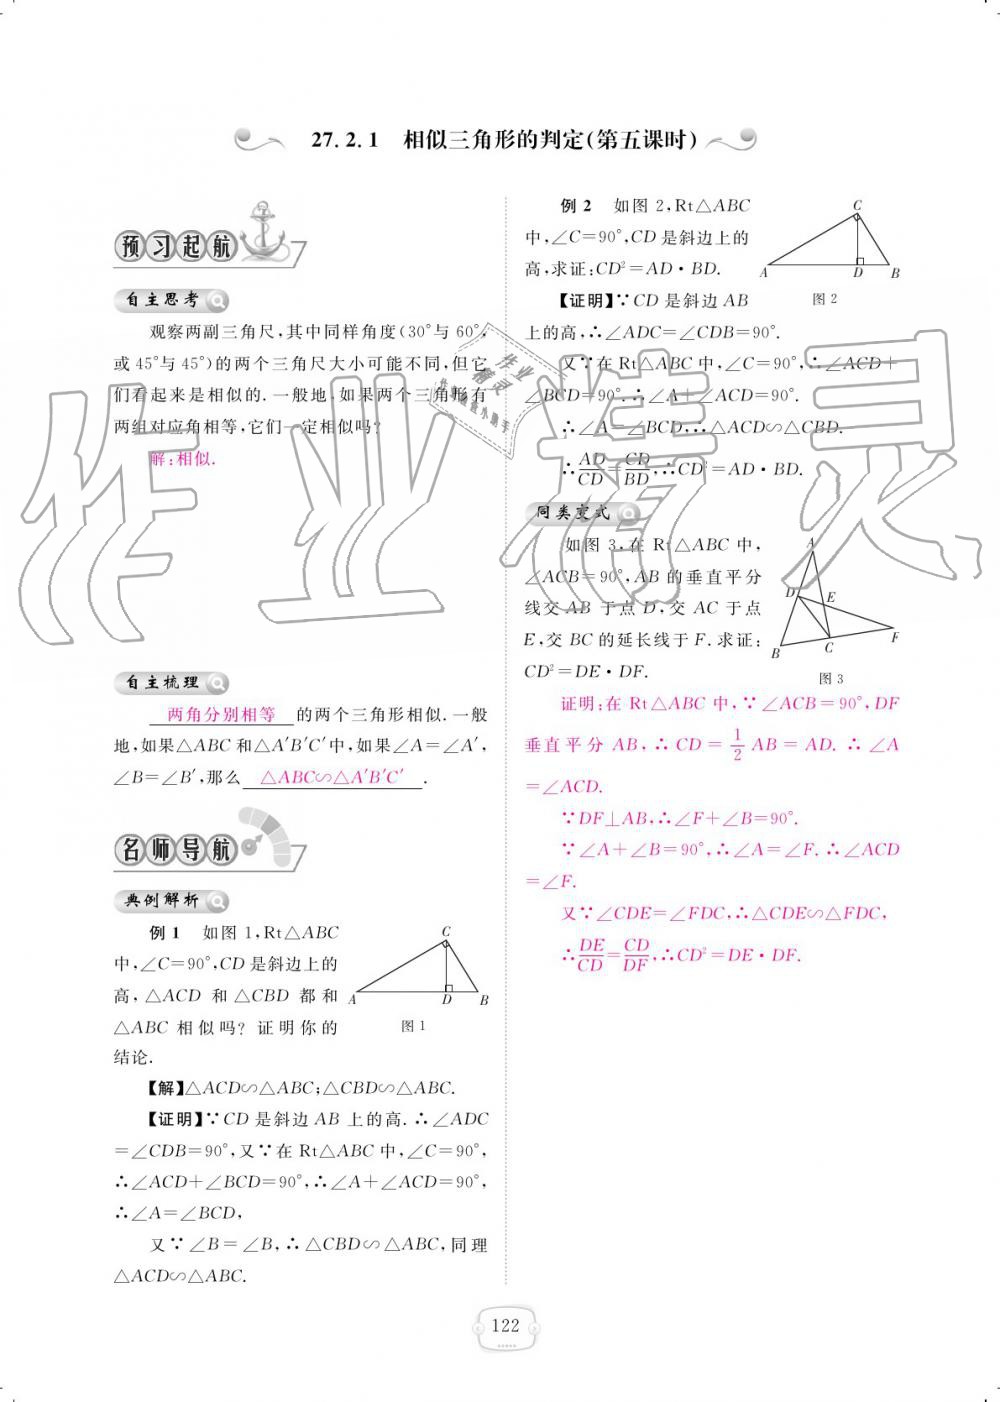 27. 2. 1 相似三角形的判定(第五课时)
预习起航
自主思考
观察两副三角尺,其中同样角度(30°与 60°,
或 45°与 45°)的两个三角尺大小可能不同,但它
们看起来是相似的. 一般地,如果两个三角形有
两组对应角相等,它们一定相似吗?
解:相似.
自主梳理
两角分别相等 的两个三角形相似. 一般
地,如果△ABC 和△A′B′C′中,如果∠A=∠A′,
∠B=∠B′,那么 △ABC∽△A′B′C′ .
名师导航
典例解析
例 1 如图 1,Rt△ABC
中,∠C=90°,CD 是斜边上的
高,△ACD 和△CBD 都和
△ABC 相似吗? 证明你的
结论.
C
A D B
图 1
【解】△ACD∽△ABC;△CBD∽△ABC.
【证明】∵CD 是斜边 AB 上的高. ∴∠ADC
=∠CDB=90°,又∵在 Rt△ABC 中,∠C=90°,
∴∠ACD+∠BCD=90°,∴∠A+∠ACD=90°,
∴∠A=∠BCD,
又∵∠B=∠B,∴△CBD∽△ABC,同理
△ACD∽△ABC.
例 2 如图 2,Rt△ABC
中,∠C=90°,CD 是斜边上的
高,求证:CD²=AD·BD.
C
A D B
图 2
【证明】∵CD 是斜边 AB
上的高,∴∠ADC=∠CDB=90°.
又∵在 Rt△ABC 中,∠C=90°,∴∠ACD+
∠BCD=90°.∴∠A+∠ACD=90°.
∴∠A=∠BCD,∴△ACD∽△CBD.
∴AD/CD=CD/BD,∴CD²=AD·BD.
同类变式
如图 3,在 Rt△ABC 中,
∠ACB=90°,AB 的垂直平分
线交 AB 于点 D,交 AC 于点
E,交 BC 的延长线于 F. 求证:
CD²=DE·DF.
A
D E
F
B C
图 3
证明:在 Rt△ABC 中,∵∠ACB=90°,DF
垂直平分 AB,∴CD=1/2 AB=AD. ∴∠A
=∠ACD.
∵DF⊥AB,∴∠F+∠B=90°.
∵∠A+∠B=90°,∴∠A=∠F. ∴∠ACD
=∠F.
又∵∠CDE=∠FDC,∴△CDE∽△FDC,
∴DE/CD=CD/DF,∴CD²=DE·DF.
122
作业精灵
作业
精灵